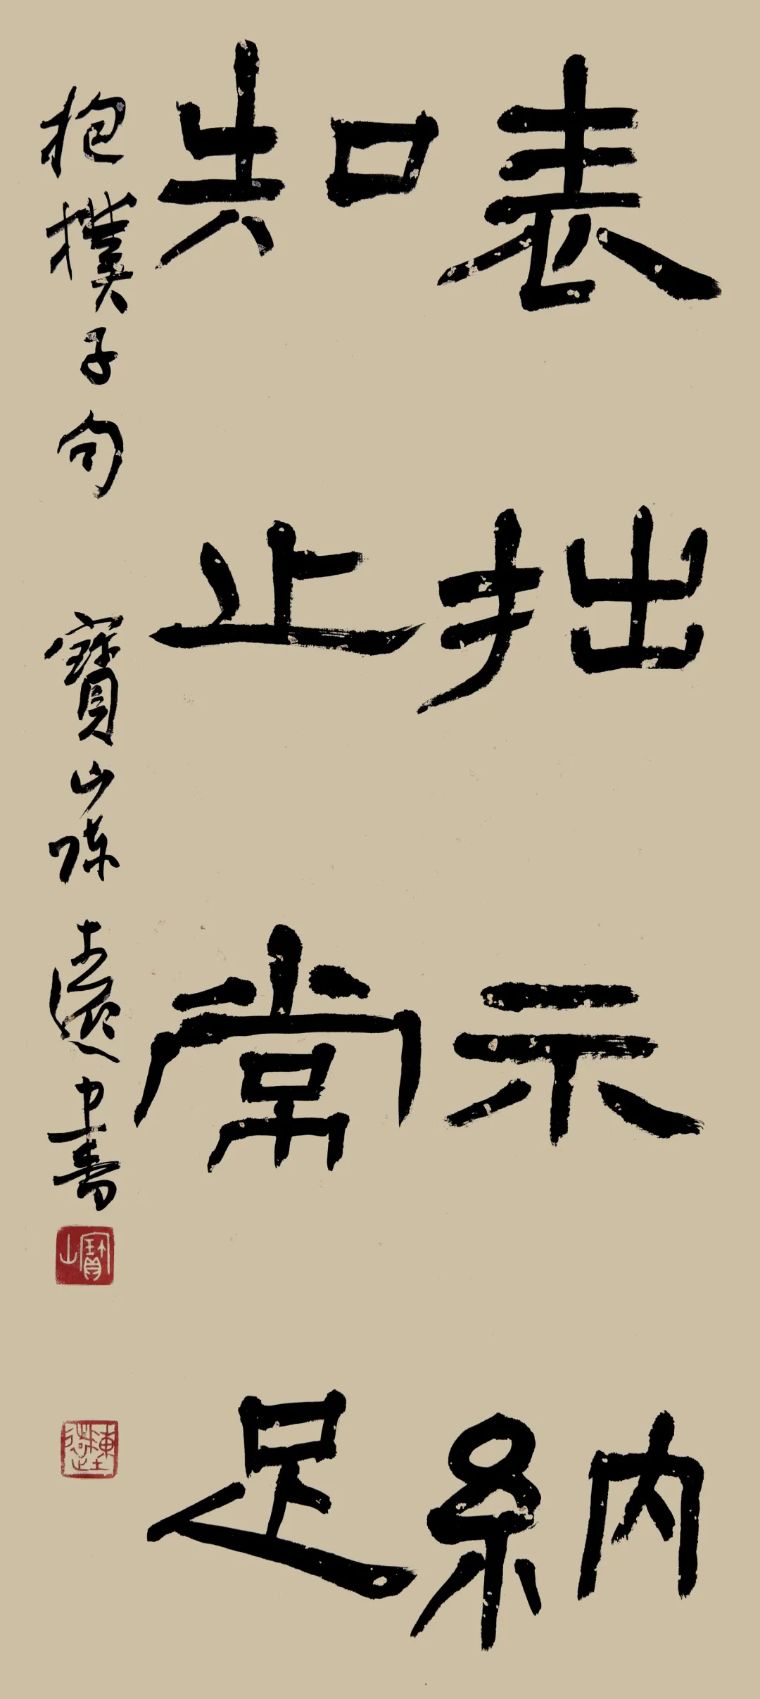 表拙示納
知止常足
抱撲子句
寶山陳遠書
寶山